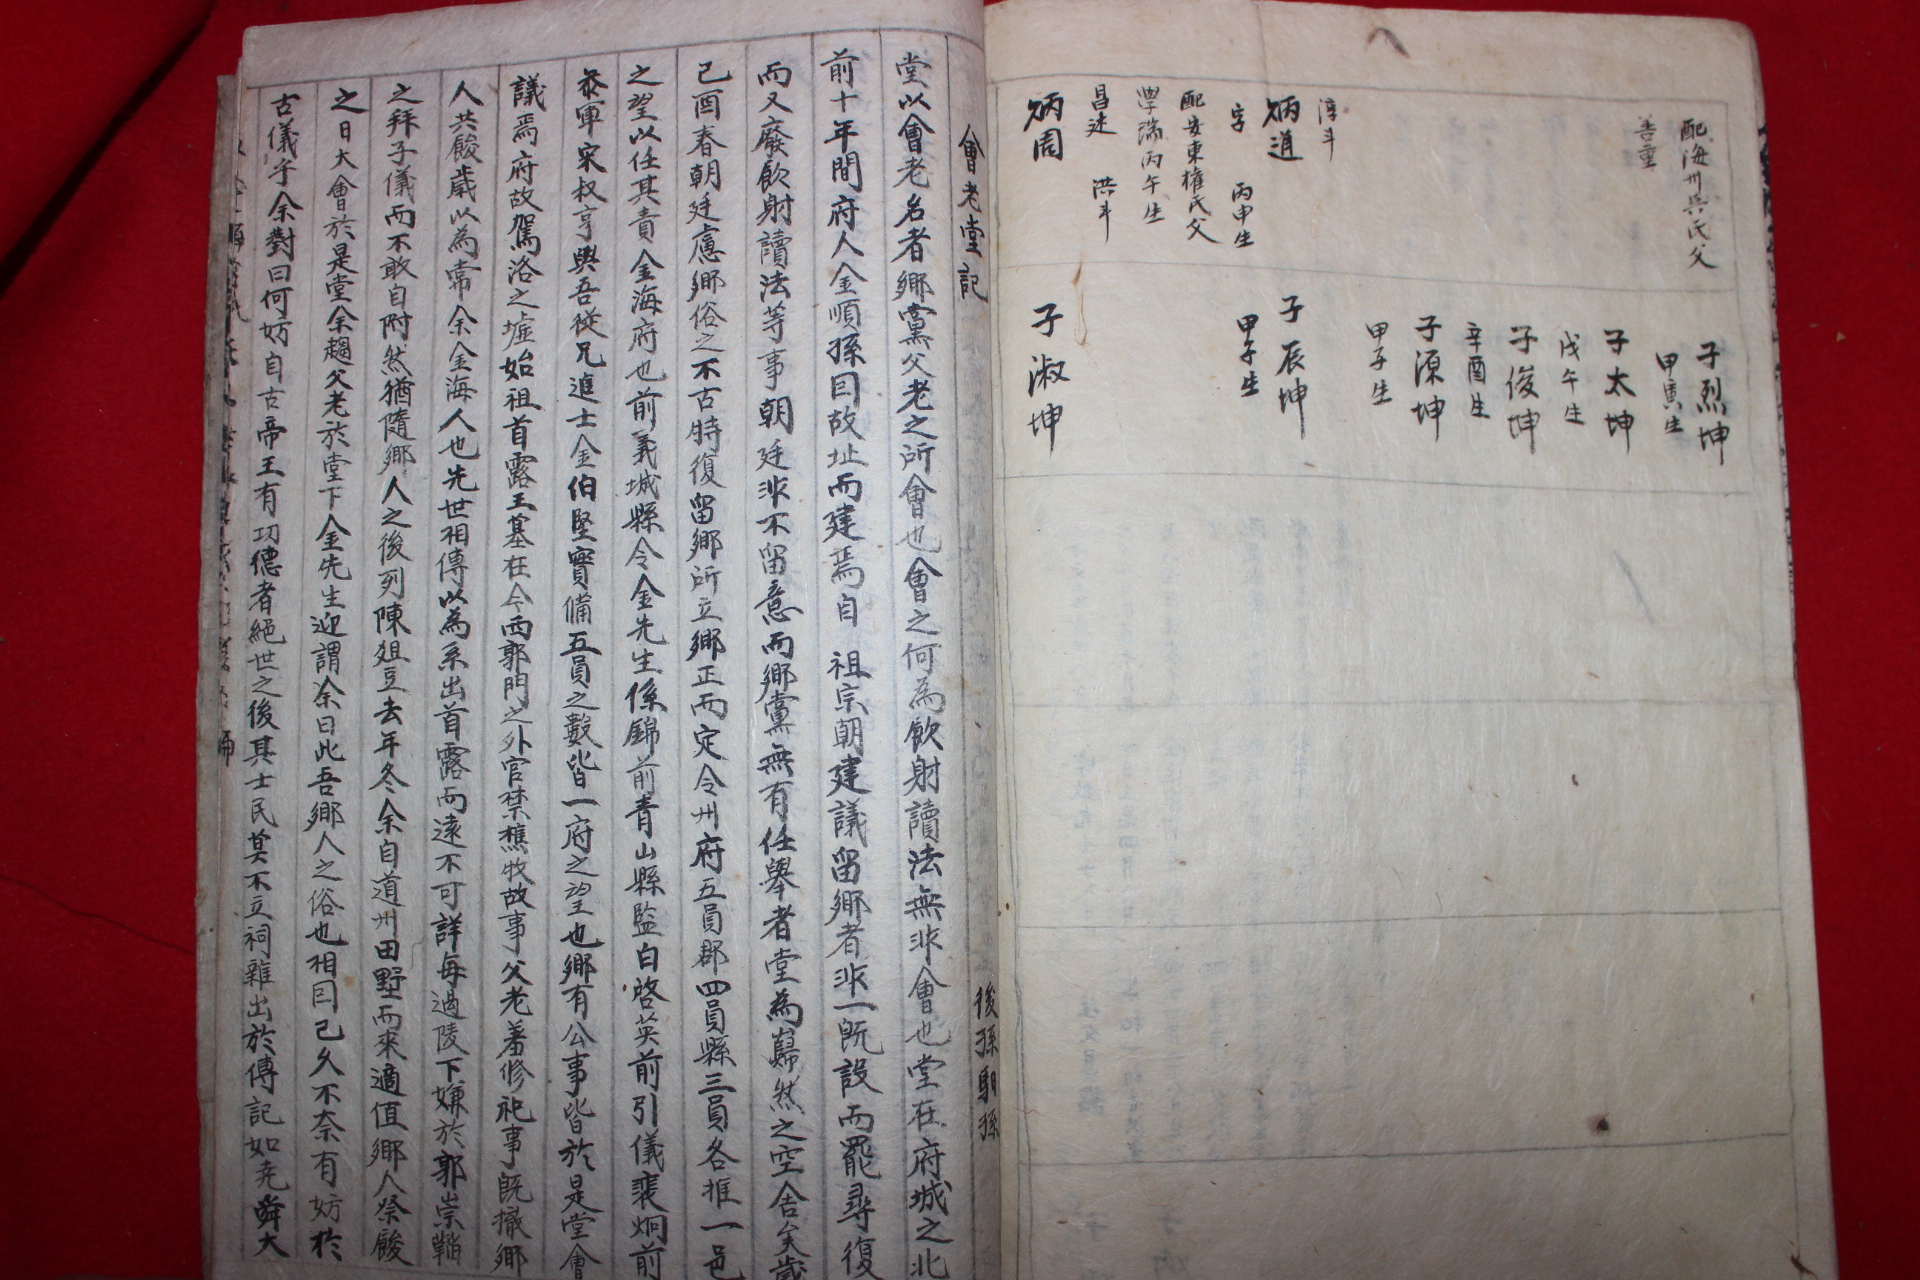 配海州吳氏父
善重
子烈坤
甲寅生
子太坤
戊午生
子俊坤
辛酉生
子源坤
甲子生
淳斗
炳道
字 丙申生
配安東權氏父
學瑞丙午生
昌述 洪斗
炳周
子辰坤
甲子生
子淑坤
會老堂記 後孫馹孫
堂以會老名者鄉黨父老之所會也會之何為飲射讀法無非會也堂在府城之北
前十年間府人金順孫因故址而建焉自 祖宗朝建議留鄉者非一旣設而罷尋復
而又廢飲射讀法等事朝廷非不留意而鄉黨無有任舉者堂為巋然之空舍矣歲
己酉春朝廷慮鄉俗之不古時復留鄉所立鄉正而定令州府五員郡四員縣三員各推一邑
之望以任其責金海府也前義城縣令金先生係錦前青山縣監白啓英前引儀裴炯前
叅軍宋叔亨與吾從兄進士金伯堅實備五員之數皆一府之望也鄉有公事皆於是堂會
議焉府故駕洛之墟始祖首露王墓在今西郭門之外官禁樵牧故事父老羞修祀事旣撤鄉
人共餕歲以為常余金海人也先世相傳以為系出首露而遠不可詳每過陵下嫌於郭崇韜
之拜子儀而不敢自附然猶隨鄉人之後列陳俎豆去年冬余自道州田墅而來適值鄉人祭餕
之日大會於是堂余趨父老於堂下金先生迎謂余曰此吾鄉人之俗也相因已久不奈有妨於
古儀乎余對曰何妨自古帝王有功德者絕世之後其士民莫不立祠雜出於傳記如堯舜大